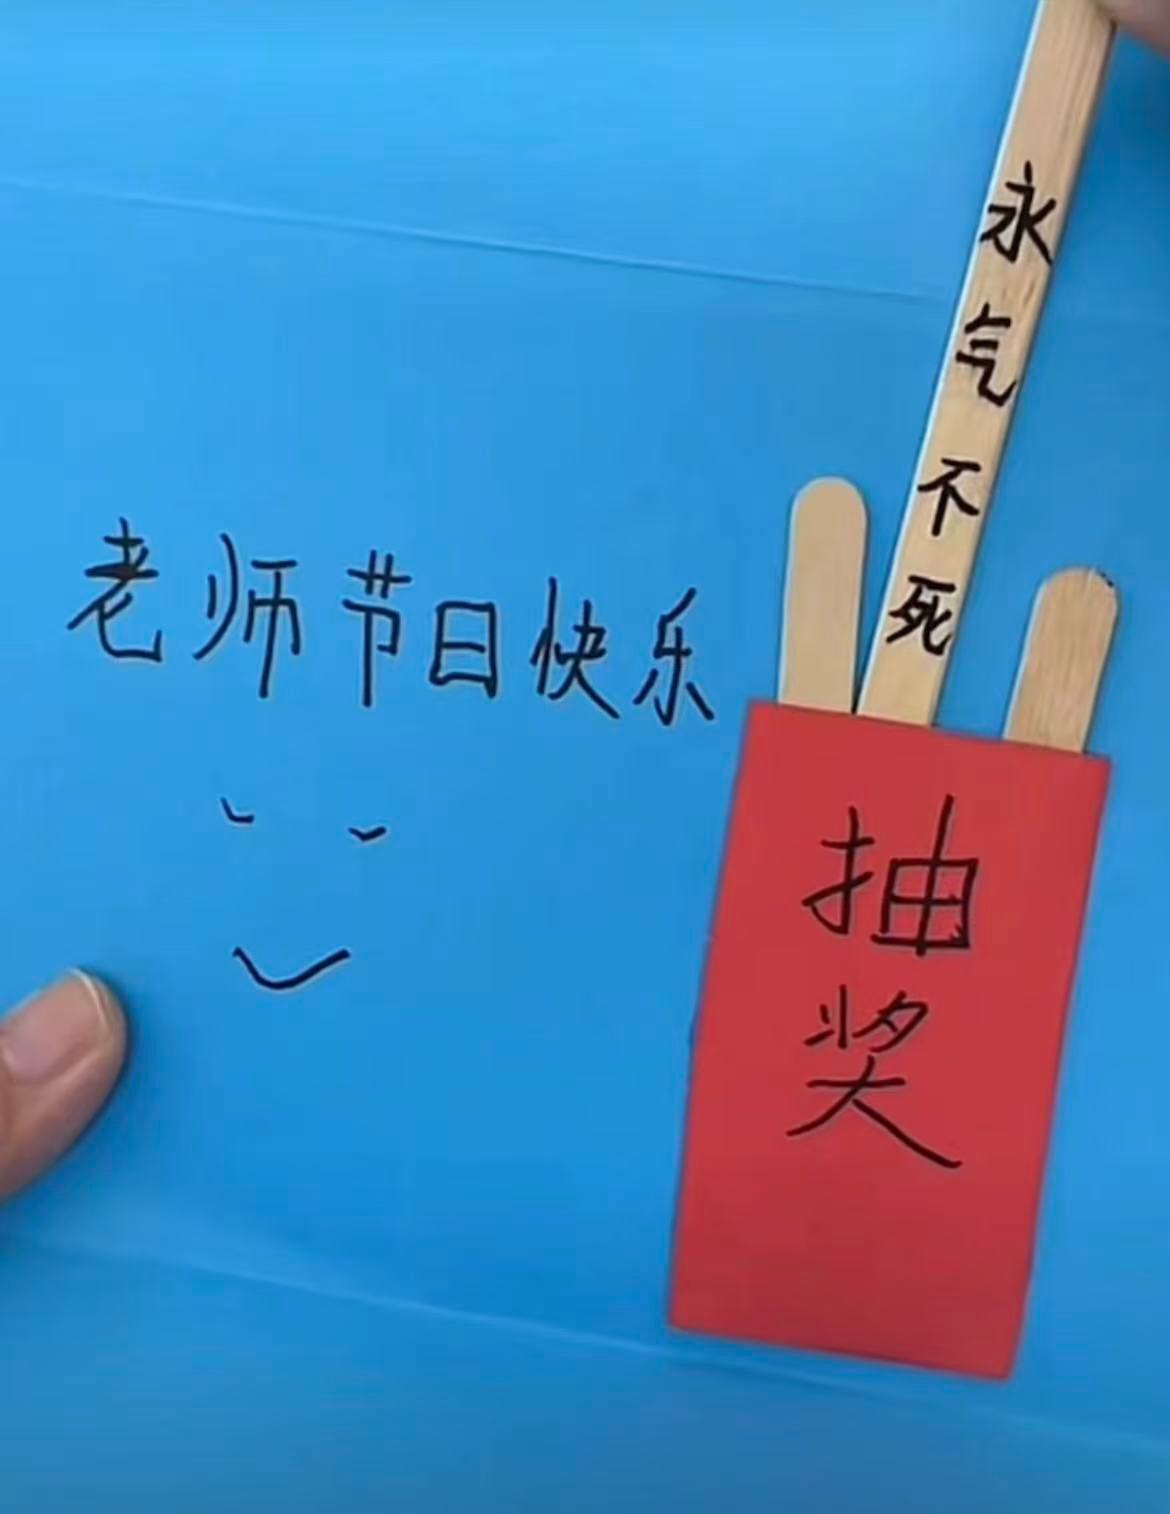 永气不死
老师节日快乐
抽奖